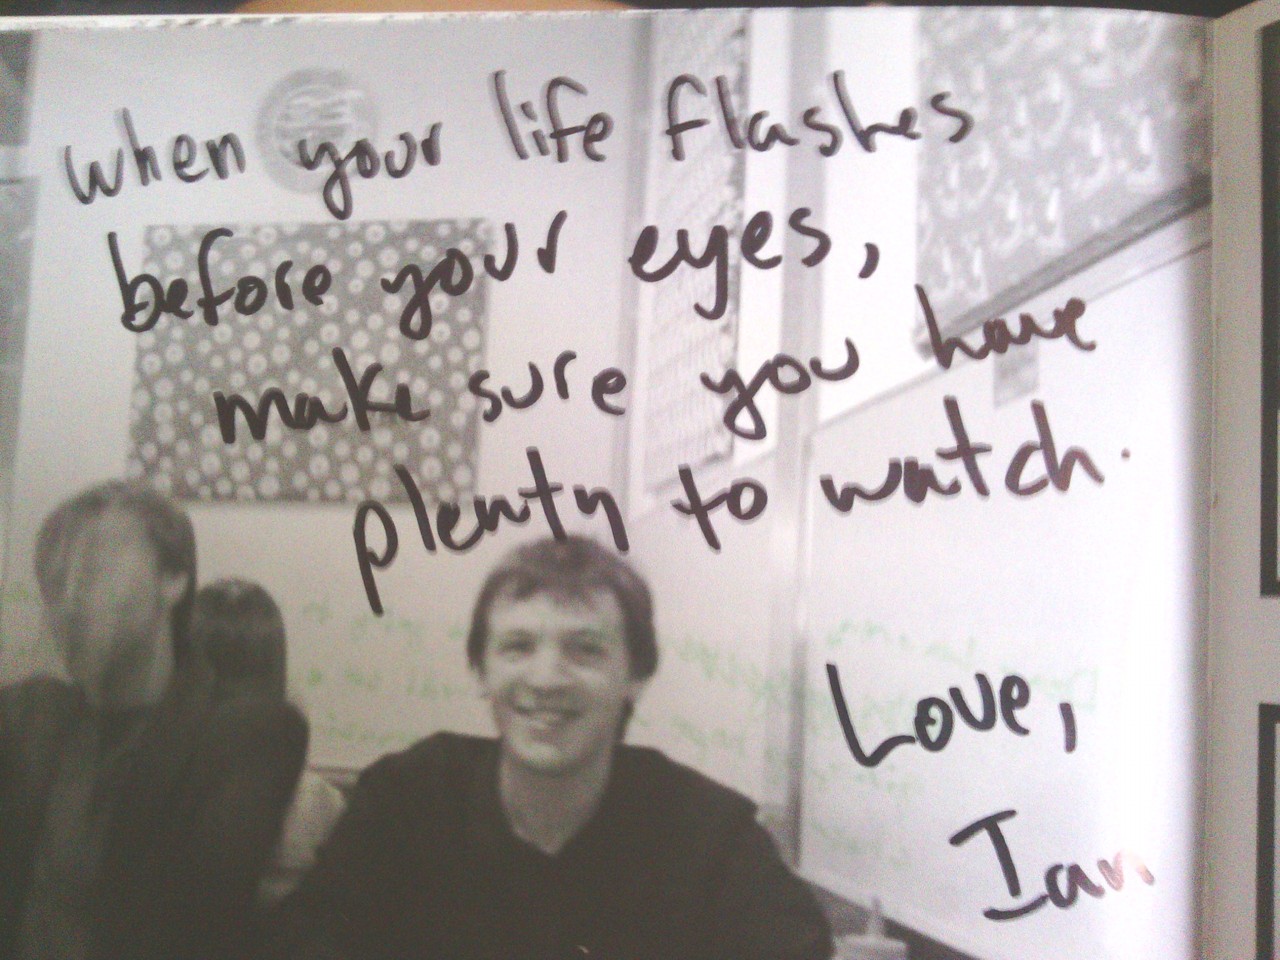 when your life flashes
before your eyes,
make sure you have
plenty to watch.
Love,
Ian